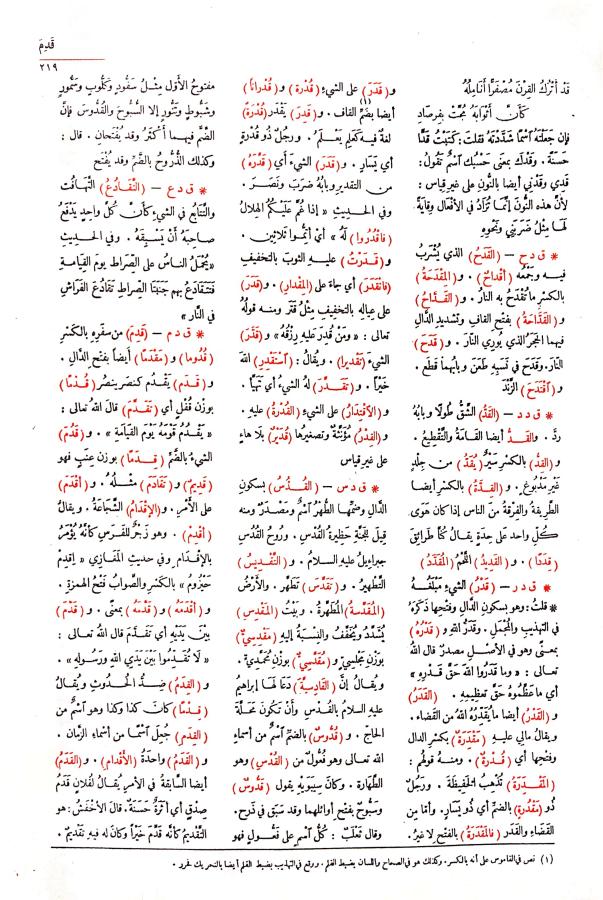 قَدِمَ
٢١٩
قَدْ أَتْرُكُ القِرْنَ مُصْفَرًّا أَنَامِلُهُ
كَأَنَّ أَثْوَابَهُ مُجَّتْ بِفِرْصَادِ
فإن جَعَلْتَهُ اسْمًا شَدَّدْتَهُ فقلتَ: كَتَبْتُ قَدًّا
حَسَنَةً . وقَدْكَ بمعنى حَسْبُك اسْمٌ تقُولُ:
قَدِي وقَدْنِي أيضا بالنون على غير قياس ؛
لأنّ هذه النُّونَ إنّما تُزَادُ في الأفعال وِقايةً
لها مِثلُ ضَرَبَنِي ونحوه
* ق د ح – (القَدَحُ) الذي يُشْرَبُ
فيه وجَمْعُه (أَقْدَاحٌ) . و (المِقْدَحَةُ)
بالكسرِ ما تُقْدَحُ به النارُ . و (القَدَّاحُ)
و (القَدَّاحَةُ) بفتح القاف وتشديد الدَّال
فيهما الحَجَرُ الذي يُورِي النَّارَ . و (قَدَحَ)
النَّارَ . وقَدَحَ في نَسَبِهِ طَعَنَ وبابُهما قَطَعَ .
و (اقْتَدَحَ) الزَّنْدَ
* ق د د – (القَدُّ) الشَّقُّ طُولًا وبابُهُ
ردَّ . و (القَدُّ) أيضا القَامةُ والتَّقْطِيعُ .
و (القِدُّ) بالكسرِ سَيْرٌ (يُقَدُّ) من جِلْدٍ
غَيْرِ مَدْبُوغٍ . و (القِدَّةُ) بالكسرِ أيضا
الطَّرِيقةُ والفِرْقةُ من الناس إذا كان هَوَى
كُلِّ واحد على حِدَةٍ يقال كُنَّا طَرَائقَ
(قِدَدًا) . و (القَدِيدُ) اللَّحْمُ (المُقَدَّدُ)
* ق د ر – (قَدْرُ) الشيءِ مَبْلَغُهُ
* قلتُ: وهو بسكونِ الدَّالِ وفتحِها ذَكَرَهُ
في التهذيب والمُجْمَل . وقَدَرُ اللهِ و (قَدْرُهُ)
بمعنًى وهو في الأصْلِ مصدرٌ قال اللهُ
تعالى : « ما قَدَرُوا اللهَ حَقَّ قَدْرِهِ »
أي ما عَظَّمُوهُ حَقَّ تعظِيمِه . (القَدَرُ)
و (القَدْرُ) أيضا ما يُقَدِّرُهُ اللهُ من القَضاءِ .
ويقال مالي عليه (مَقْدَِرَةٌ) بكسر الدال
وفتحها أي (قُدْرَةٌ) . ومنه قولهم :
(المَقْدَُِرَةُ) تُذْهِبُ الحَفِيظَةَ . ورَجُلٌ
ذو (مَقْدُرَةٍ) بالضمِّ أي ذو يَسَارٍ . وأمّا من
القَضاءِ والقَدَر (فالمَقْدَرَةُ) بالفتحِ لا غيرُ .
و (قَدَرَ) على الشيءِ (قُدْرَةً) و (قُدْرَانًا)
أيضا بضَمِّ(١) القاف . و (قَدِرَ) يَقْدَر (قُدْرَةً)
لغةٌ فيه كعَلِم يَعْلَمُ . ورجلٌ ذُو قُدْرةٍ
أي يَسَارٍ . و (قَدَرَ) الشيءَ أي (قَدَّرَهُ)
من التقديرِ وبابُهُ ضَرَبَ ونَصَرَ .
وفي الحديث « إذا غُمَّ عَلَيكُمُ الهِلالُ
(فاقْدُرُوا) لَهُ » أي أَتِمُّوا ثلاثين .
و (قَدَرْتُ) عليه الثوبَ بالتخفيف
(فانْقَدَرَ) أي جاءَ على (المِقْدارِ) . و (قَدَرَ)
على عِيالِه بالتخفيفِ مِثْلُ قَتَرَ ومنه قولُهُ
تعالى : « ومَنْ قُدِرَ عَلَيْهِ رِزْقُهُ » و (قَدَّرَ)
الشيءَ (تَقْدِيرًا) . ويُقال : (اسْتَقْدِرِ) اللهَ
خَيْرًا . و (تَقَدَّرَ) لهُ الشيءُ أي تَهَيَّأَ .
و (الاقْتِدارُ) على الشيءِ (القُدْرَةُ) عليه .
و (القِدْرُ) مُؤَنَّثةٌ وتصغيرها (قُدَيْرٌ) بلا هاءٍ
على غيرِ قِياسٍ
* ق د س – (القُدُْسُ) بسكونِ
الدَّال وضَمِّها الطُّهْرُ اسْمٌ ومَصْدَرٌ ومنه
قِيلَ للجَنَّةِ حَظِيرةُ القُدْسِ . ورُوحُ القُدُسِ
جبراءيلُ عليه السلامُ . و (التَّقْدِيسُ)
التَّطْهيرُ . و (تَقَدَّسَ) تَطَهَّرَ . والأرْضُ
(المُقَدَّسَةُ) المُطَهَّرةُ . وبَيْتُ (المَقْدِسِ)
يُشَدَّدُ ويُخَفَّفُ والنِّسْبةُ إليه (مَقْدِسِيٌّ)
بوزن مَجْلِسِيٍّ و (مُقَدَّسِيٌّ) بوزن مُحَمَّدِيٍّ .
ويُقالُ إنَّ (القَادِسِيَّةَ) دَعَا لَهَا إبراهيمُ
عليه السلامُ بالقُدْسِ وأنْ تكونَ مَحَلَّةَ
الحاجِّ . و (قُدُّوسٌ) بالضم اسْمٌ من أسْماءِ
اللهِ تعالى وهو فُعُّولٌ من (القُدْسِ) وهو
الطَّهارة . وكان سِيبَوَيْهِ يقول (قَدُّوسٌ)
وسَبُّوحٌ بفتحِ أوائلهما وقد سَبَقَ في ذرح .
وقال ثَعْلَبٌ : كُلُّ اسْمٍ على فَعُّولٍ فهو
مفتوحُ الأوّل مِثْلُ سَفُّودٍ وكَلُّوبٍ وسَمُّورٍ
وشَبُّوطٍ وتَنُّورٍ إلا السُّبُّوحَ والقُدُّوسَ فإنَّ
الضَّمَّ فيهما أَكْثرُ وقد يُفتحان . قال :
وكذلك الذُّرُّوحُ بالضمِّ وقد يفتح
* ق د ع – (التَّقَادُعُ) التَّهَافُتُ
والتَّتَابُعُ في الشيءِ كأنّ كُلَّ واحِدٍ يَدْفَعُ
صاحِبَهُ أنْ يَسْبِقَهُ . وفي الحديثِ
« يُحْمَلُ الناسُ على الصِّراطِ يومَ القِيامةِ
فَتَتَقَادَعُ بهم جَنَبَتَا الصِّراطِ تَقَادُعَ الفَرَاشِ
في النَّارِ »
* ق د م – (قَدِمَ) من سفرِه بالكَسْرِ
(قُدُومًا) و (مَقْدَمًا) أيضاً بفتح الدَّال .
و (قَدَمَ) يَقْدُم كنصَر ينصُر (قُدْمًا)
بوزن قُفْلٍ أي (تَقَدَّمَ) قال اللهُ تعالى :
« يَقْدُمُ قَوْمَهُ يَوْمَ القِيَامَةِ » . و (قَدُمَ)
الشيءُ بالضَّمِّ (قِدَمًا) بوزنِ عِنَبٍ فهو
(قَدِيمٌ) و (تَقَادَمَ) مثلُهُ . و (أَقْدَمَ)
على الأمْرِ . و (الإقْدَامُ) الشَّجَاعةُ . ويقالُ
(أَقْدِمْ) . وهو زَجْرٌ للفَرَسِ كأنّهُ يُؤْمَرُ
بالإقْدامِ وفي حديثِ المَغَازِي « إقدِمْ
حَيْزُومُ » بالكَسْرِ والصَّوابُ فَتْحُ الهَمْزةِ .
و (أَقْدَمَهُ) و (قَدَّمَهُ) بمعنًى . و (قَدَّمَ)
بينَ يَدَيْهِ أي تَقَدَّمَ قال اللهُ تعالى :
« لا تُقَدِّمُوا بَيْنَ يَدَيِ اللهِ ورَسُولِهِ » .
و (القِدَمُ) ضِدُّ الحُدُوثِ ويُقالُ
(قِدْمًا) كانَ كذا وكذا وهو اسْمٌ من
(القِدَمِ) جُعِلَ اسْمًا من أسماءِ الزَّمانِ .
و (القَدَمُ) واحدةُ (الأَقْدامِ) . و (القَدَمُ)
أيضا السَّابقةُ في الأمْرِ يُقالُ لفُلانٍ قَدَمُ
صِدْقٍ أي أَثَرةٌ حَسَنةٌ . قال الأخْفَشُ : هو
التَّقديمُ كأنّه قَدَّمَ خَيْرًا وكانَ له فيهِ تَقْديمٌ .
(١) نص في القاموس على أنه بالكسر . وكذلك هو في الصحاح واللسان بضبط القلم . ووقع في التهذيب بضبط القلم أيضا بالتحريك فحرر .